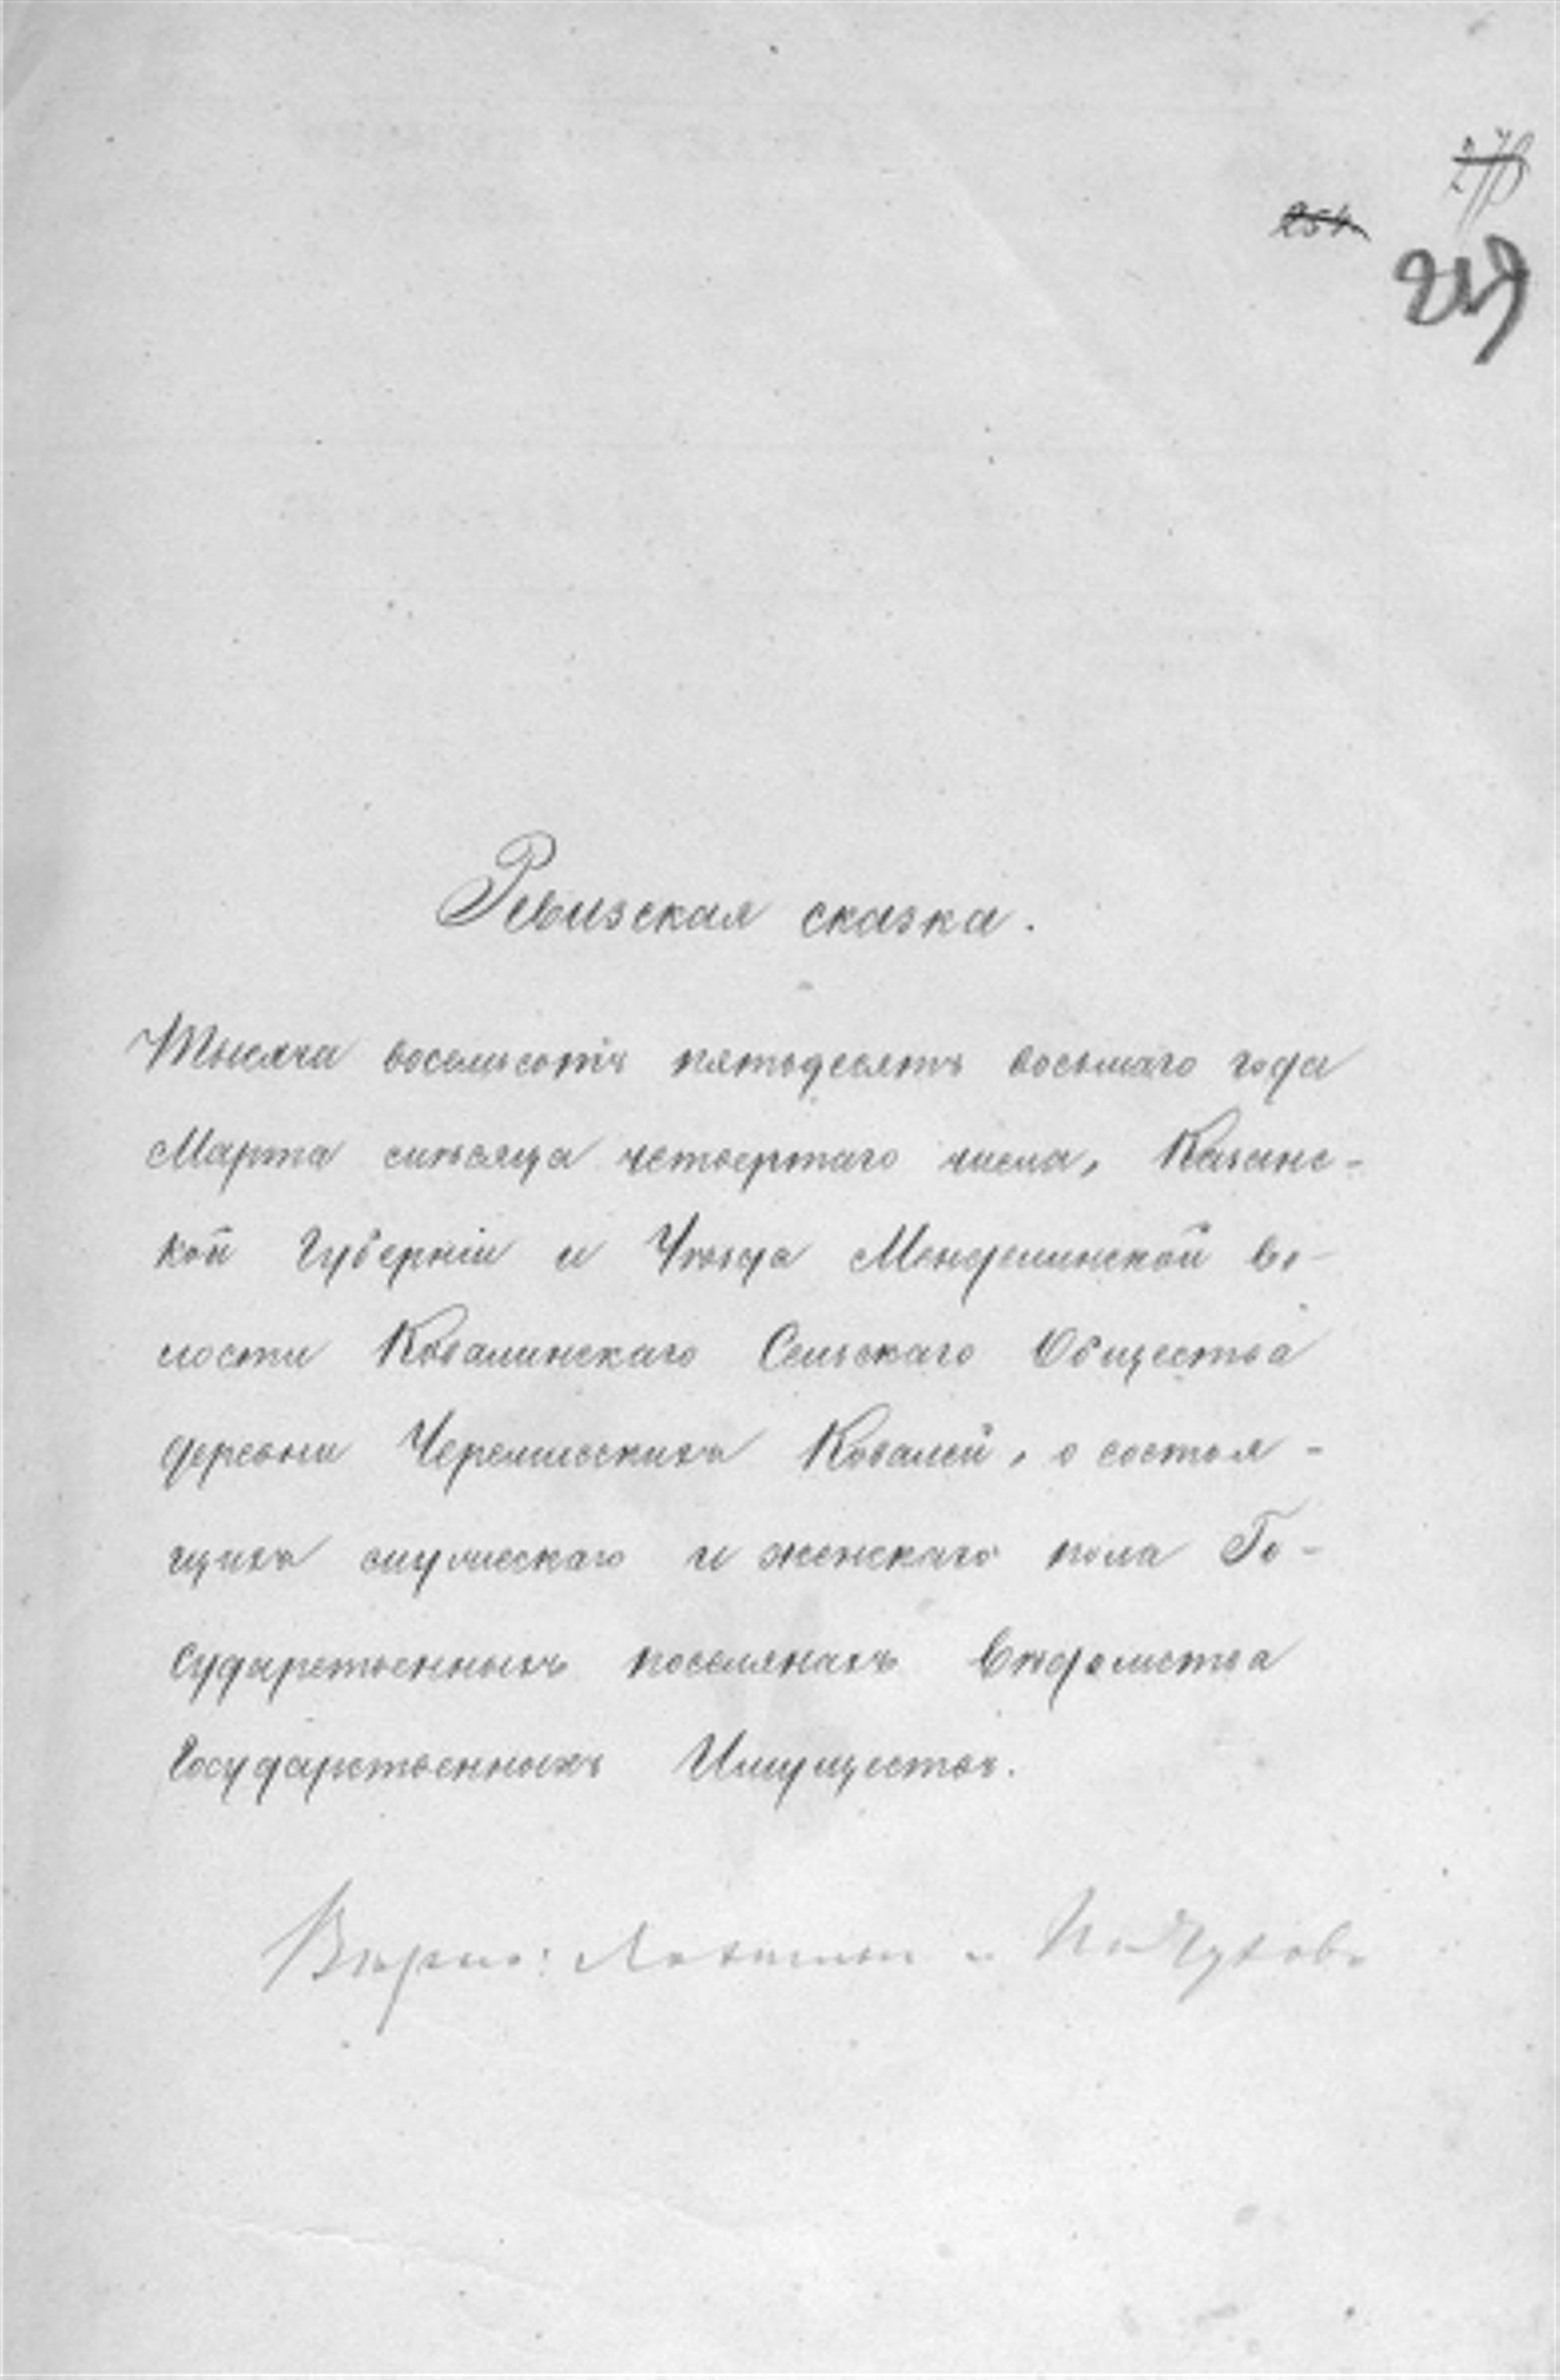 Ревизская сказка.
Тысяча восемьсотъ пятьдесятъ восьмаго года
Марта мѣсяца четвертаго числа, Казанс-
кой Губерніи и Уѣзда Менделинской во-
лости Ковалинскаго Сельскаго Общества
деревни Черемисскихъ Ковалей, о состоя-
щихъ мужескаго и женскаго пола Го-
сударственныхъ поселянахъ вѣдомства
Государственныхъ Имуществъ.
Вѣрно: